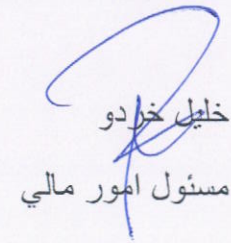 خليل خردو
مسئول امور مالي